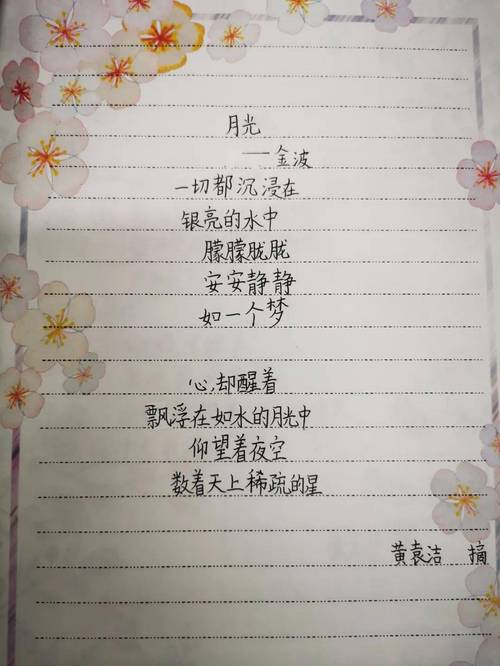 月光
——金波
一切都沉浸在
银亮的水中
朦朦胧胧
安安静静
如一个梦
心,却醒着
飘浮在如水的月光中
仰望着夜空
数着天上稀疏的星
黄袁洁 摘